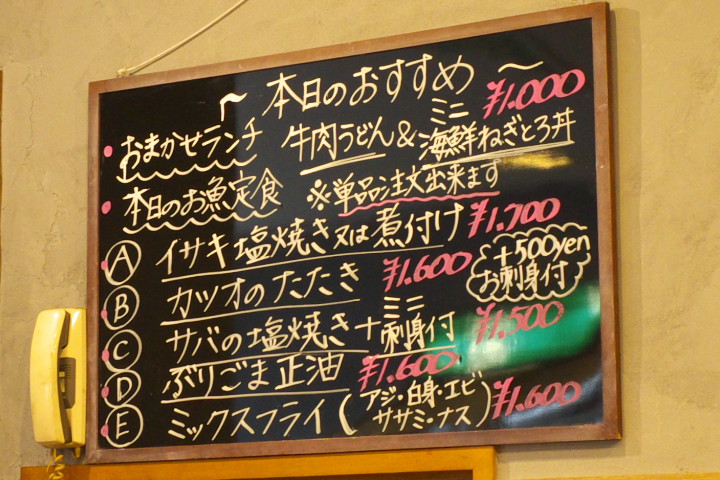 ～ 本日のおすすめ ～
・おまかせランチ 牛肉うどん & ミニ海鮮ねぎとろ丼 ¥1.000
・本日のお魚定食 ※単品注文出来ます
Ⓐ イサキ塩焼き又は煮付け ¥1.700
Ⓑ カツオのたたき ¥1.600
+500yen
お刺身付
Ⓒ サバの塩焼き+ミニ刺身付 ¥1,500
Ⓓ ぶりごま正油 ¥1.600
Ⓔ ミックスフライ(アジ・白身・エビ ササミ・ナス) ¥1.600